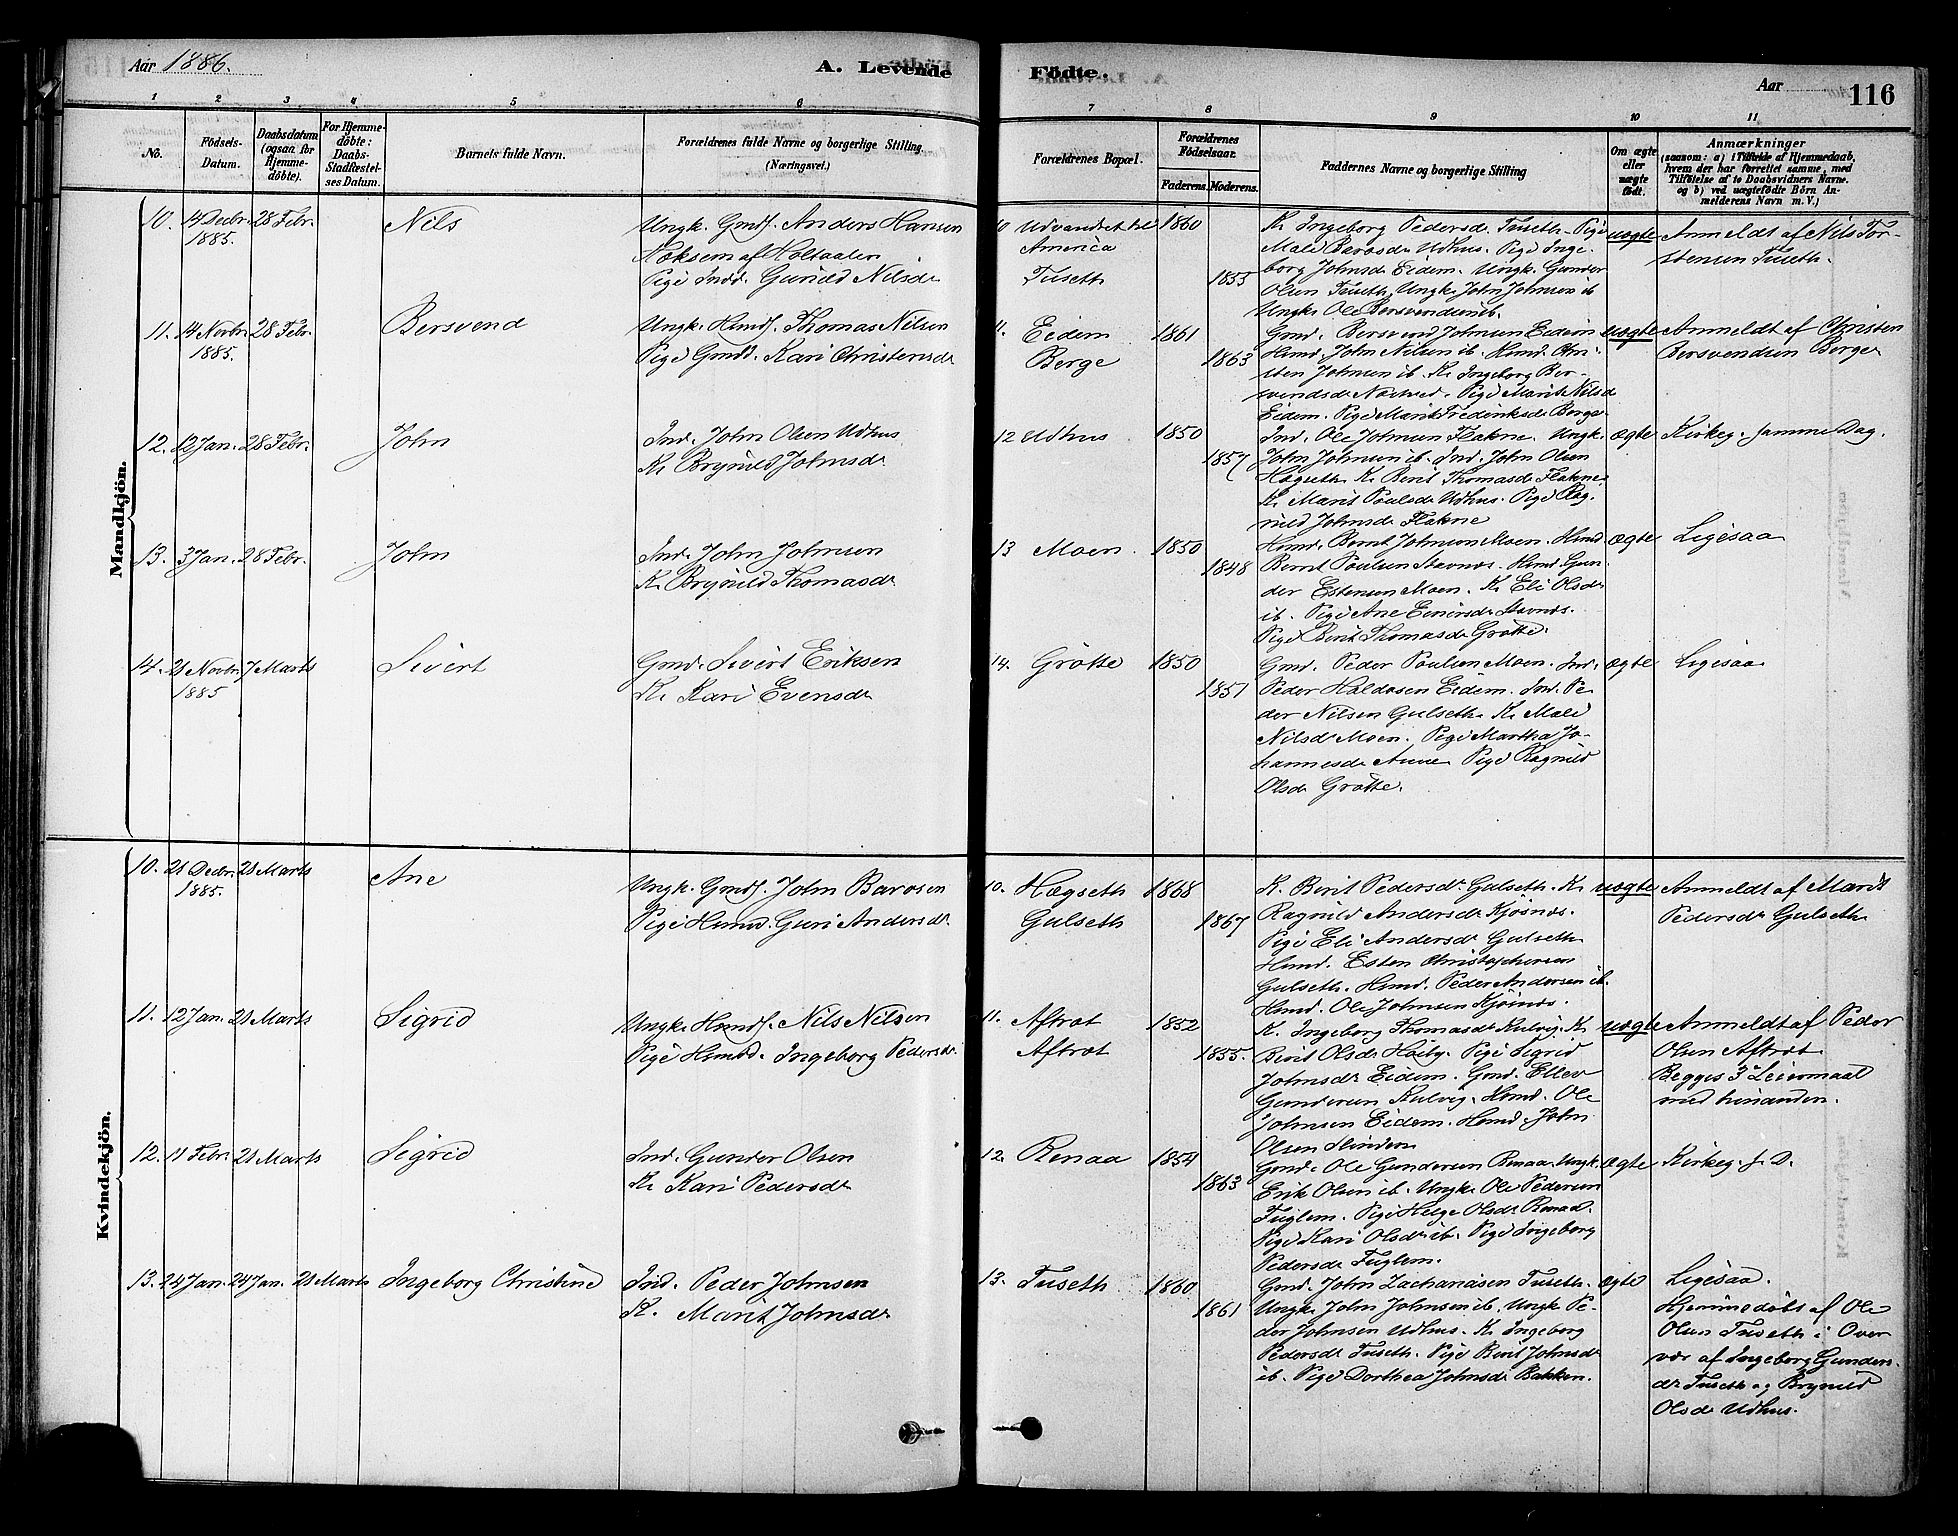 Aar 1886.
A. Levende
Födte.
Aar
116
1 2 3 4 5 6 7 8 9 10 11
No.
Födsels-
Datum.
Daabsdatum
(ogsaa for
Hjemme-
döbte).
For Hjemme-
döbte:
Daabs-
Stadfæstel-
ses Datum.
Barnets fulde Navn.
Forældrenes fulde Navne og borgerlige Stilling
(Næringsvei.)
Forældrenes Bopæl.
Forældrenes
Födselsaar.
Faderens. Moderens.
Faddernes Navne og borgerlige Stilling
Om ægte
eller
uægte
födt.
Anmærkninger
(saasom: a) i Tilfælde af Hjemmedaab,
hvem der har forrettet samme, med
Tilföielse af to Daabsvidners Navne.
og b) ved uægtefödte Börn An-
melderens Navn m. V.)
Mandkjön.
10. 14 Decbr. 28 Febr. Nils
1885.
Ungk. Gmds. Anders Hansen
Hoksem af Holtaalen
Pige Ind. Gunild Nilsdr
10 Udvandret til 1860
America
Tuseth 1855
K. Ingeborg Pedersdr Tuseth. Pige
Mali Barosdr Udhus. Pige Inge-
borg Johnsdr Eidem. Ungk. Gunder
Olsen Tuseth. Ungk. John Johnsen ib
Ungk. Ole Bersvendsen ib.
uægte
Anmeldt af Nils Tor-
stensen Tuseth.
11. 14 Novbr. 28 Febr. Bersvend
1885.
Ungk. Hmds. Thomas Nilsen
Pige Gmdd. Kari Christensdr
11. Eidem 1861
Berge 1863
Gmd. Bersvend Johnsen Eidem
Hmd. John Nilsen ib. Hmd. Chri-
sten Johnsen ib. K. Ingeborg Ber-
svendsdr . Pige Marit Nilsdr
Eidem. Pige Marit Fredriksdr Berge
uægte
Anmeldt af Christen
Bersvendsen Berge
12. 12 Jan. 28 Febr. John
Ind. John Olsen Udhus
K. Brynild Johnsdr
12 Udhus 1850
1857
Ind. Ole Johnsen Flakne. Ungk.
John Johnsen ib. Ind. John Olsen
Hægseth. K. Berit Thomasdr Flakne
K. Marit Poulsdr Udhus. Pige Rag-
nild Johnsdr Flakne
ægte
Kirkeg. samme Dag.
13. 3 Jan. 28 Febr. John
Ind. John Johnsen
K. Brynild Thomasdr
13 Moen. 1850
1848
Hmd. Bernt Johnsen Moen. Hmd
Bernt Poulsen Stavnes. Hmd Gun-
der Estensen Moen. K. Eli Olsdr
ib. Pige Ane Einersdr Stavnes.
Pige Berit Thomasdr Grötte.
ægte
Ligesaa
14. 21 Novbr. 7 Marts Sivert
1885
Gmd. Sivert Eriksen
K. Kari Evensdr
14. Grötte 1850
1851
Gmd. Peder Poulsen Moen. Ind.
Peder Haldosen Eidem. Ind. Pe-
der Nilsen Gulseth. K. Mali
Nilsdr Moen. Pige Martha Jo-
hannesdr Aune Pige Ragnild
Olsdr Grötte.
ægte
Ligesaa
Kvindekjön.
10. 21 Decbr. 21 Marts Ane
1885.
Ungk. Gmds. John Barosen
Pige Hmd. Guri Andersdr.
10. Hægseth 1868
Gulseth 1867
K. Berit Pedersdr Gulseth. K.
Ragnild Andersdr Kjösnæs.
Pige Eli Andersdr Gulseth
Hmd. Esten Christophersen
Gulseth. Hmd. Peder Andersen ib.
Hmd. Ole Johnsen Kjösnæs.
uægte
Anmeldt af Marit
Pedersdr Gulseth
11. 12 Jan. 21 Marts Sigrid
Ungk. Hmds. Nils Nilsen
Pige Hmdd. Ingeborg Pedersdr.
11. Aftrøt 1852
Aftrøt 1855.
K. Ingeborg Thomasdr Kulvig. K.
Berit Olsdr Høiby. Pige Sigrid
Johnsdr Eidem. Gmd. Ellev
Gundersen Kulvig. Hmd. Ole
Johnsen Eidem. Hmd. John
Olsen
uægte
Anmeldt af Peder
Olsen Aftrøt
Begges 3 Leiermaal
med hinanden.
12. 11 Febr. 21 Marts Sigrid
Ind. Gunder Olsen
K. Kari Pedersdr
12. Renaa 1854
1863
Gmd. Ole Gundersen Renaa. Ungk.
Erik Olsen ib. Ungk. Ole Pedersen
Fuglem. Pige Helge Olsdr Renaa.
Pige Kari Olsdr ib. Pige Ingeborg
Pedersdr Fuglem.
ægte
Kirkeg. s. D.
13. 24 Jan. 24 Jan. 21 Marts Ingeborg Christine
Ind. Peder Johnsen
K. Marit Johnsdr
13. Tuseth 1860
1861
Gmd. John Zachariasen Tuseth.
Ungk. John Johnsen ib. Ungk. Pe-
der Johnsen Udhus. K. Ingeborg
Pedersdr Tuseth. Pige Berit Johnsdr
ib. Pige Dorthea Johnsdr Bakken.
ægte
Ligesaa.
Hjemmedöbt af Ole
Olsen Tuseth i Over-
vær af Ingeborg Gunders-
dr Tuseth og Brynild
Olsdr Udhus.